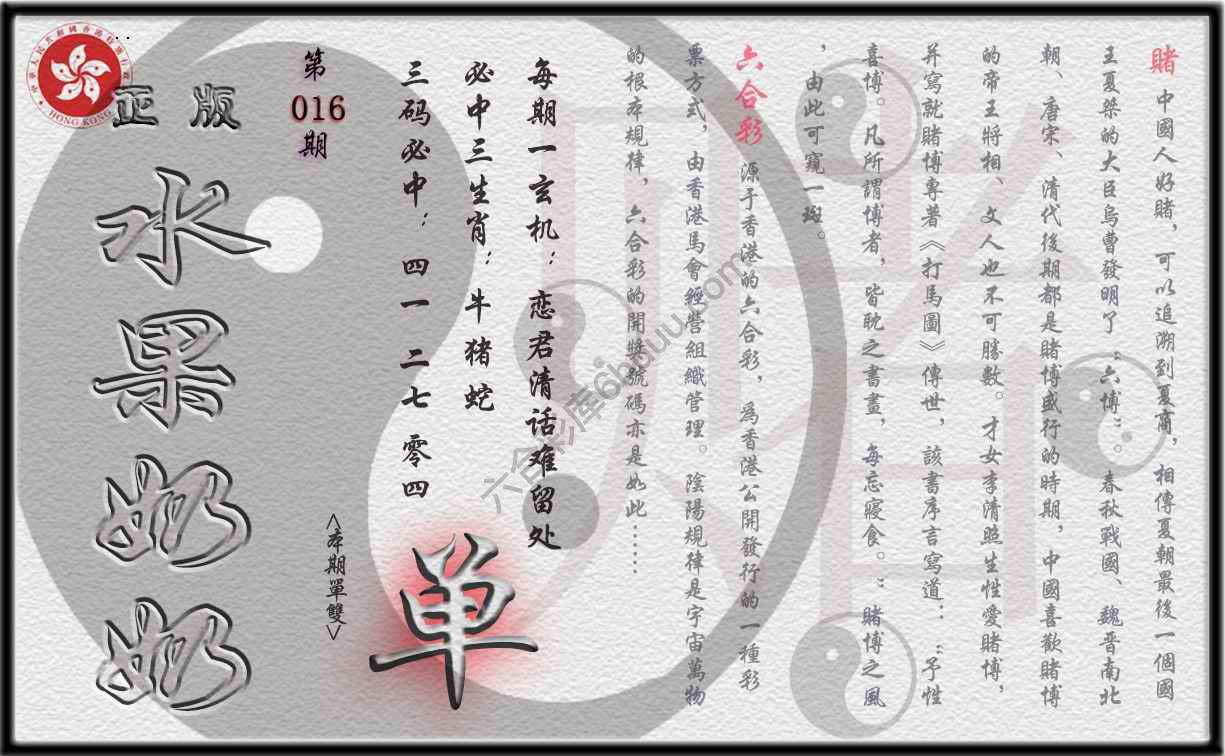 賭 中國人好賭，可以追溯到夏商，相傳夏朝最後一個國
王夏桀的大臣烏曹發明了“六博”。春秋戰國、魏晋南北
朝、唐宋、清代後期都是賭博盛行的時期，中國喜歡賭博
的帝王將相、文人也不可勝數。才女李清照生性愛賭博，
并寫就賭博專著《打馬圖》傳世，該書序言寫道：“予性
喜博。凡所謂博者，皆耽之書畫，每忘寢食。”賭博之風
，由此可窺一斑。
六合彩 源于香港的六合彩，爲香港公開發行的一種彩
票方式，由香港馬會經營組織管理。陰陽規律是宇宙萬物
的根本規律，六合彩的開獎號碼亦是如此……
每期一玄机：恋君清话难留处
必中三生肖：牛猪蛇
三码必中：四一 二七 零四
单
<本期單雙>
第
016
期
正版
水果奶奶
中華人民共和國香港特別行政區
HONG KONG
六合彩库6hduu.com
賭